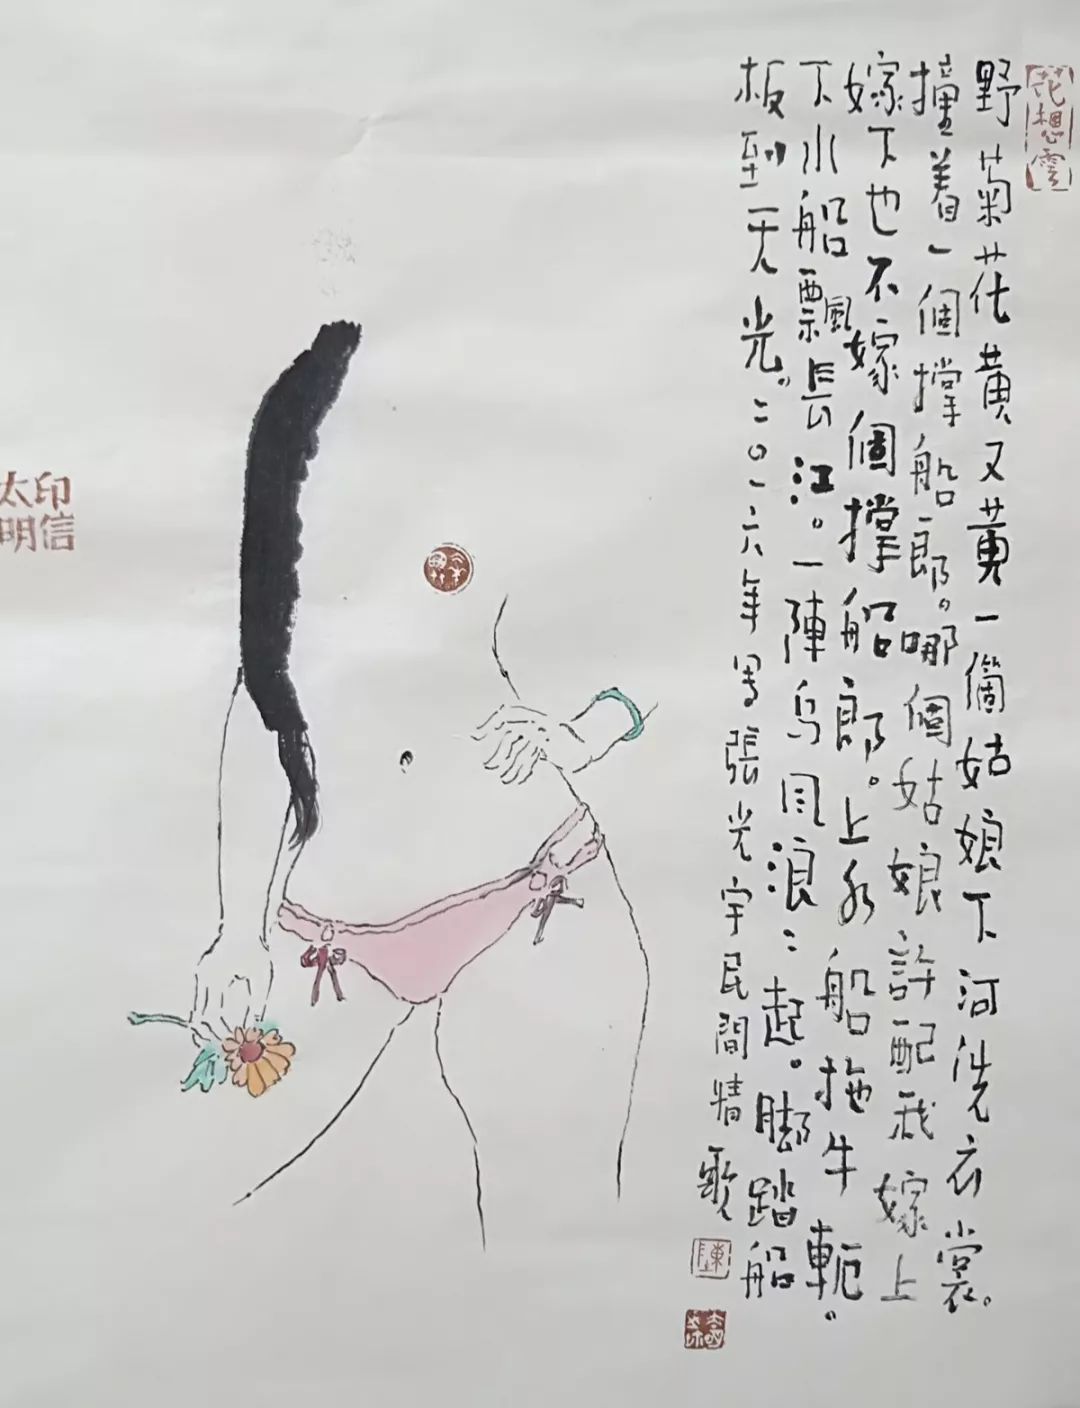 花想雲
野菊花黄又黄一箇姑娘下河洗衣裳。
撞着一個撑船郎。哪個姑娘許配我嫁上
嫁下也不嫁個撑船郎。上水船拖牛軛。
下水船飄長江。一陣烏風浪〻起。脚踏船
板到天光。二〇一六年寫張光宇民間情歌
陳
太明印信